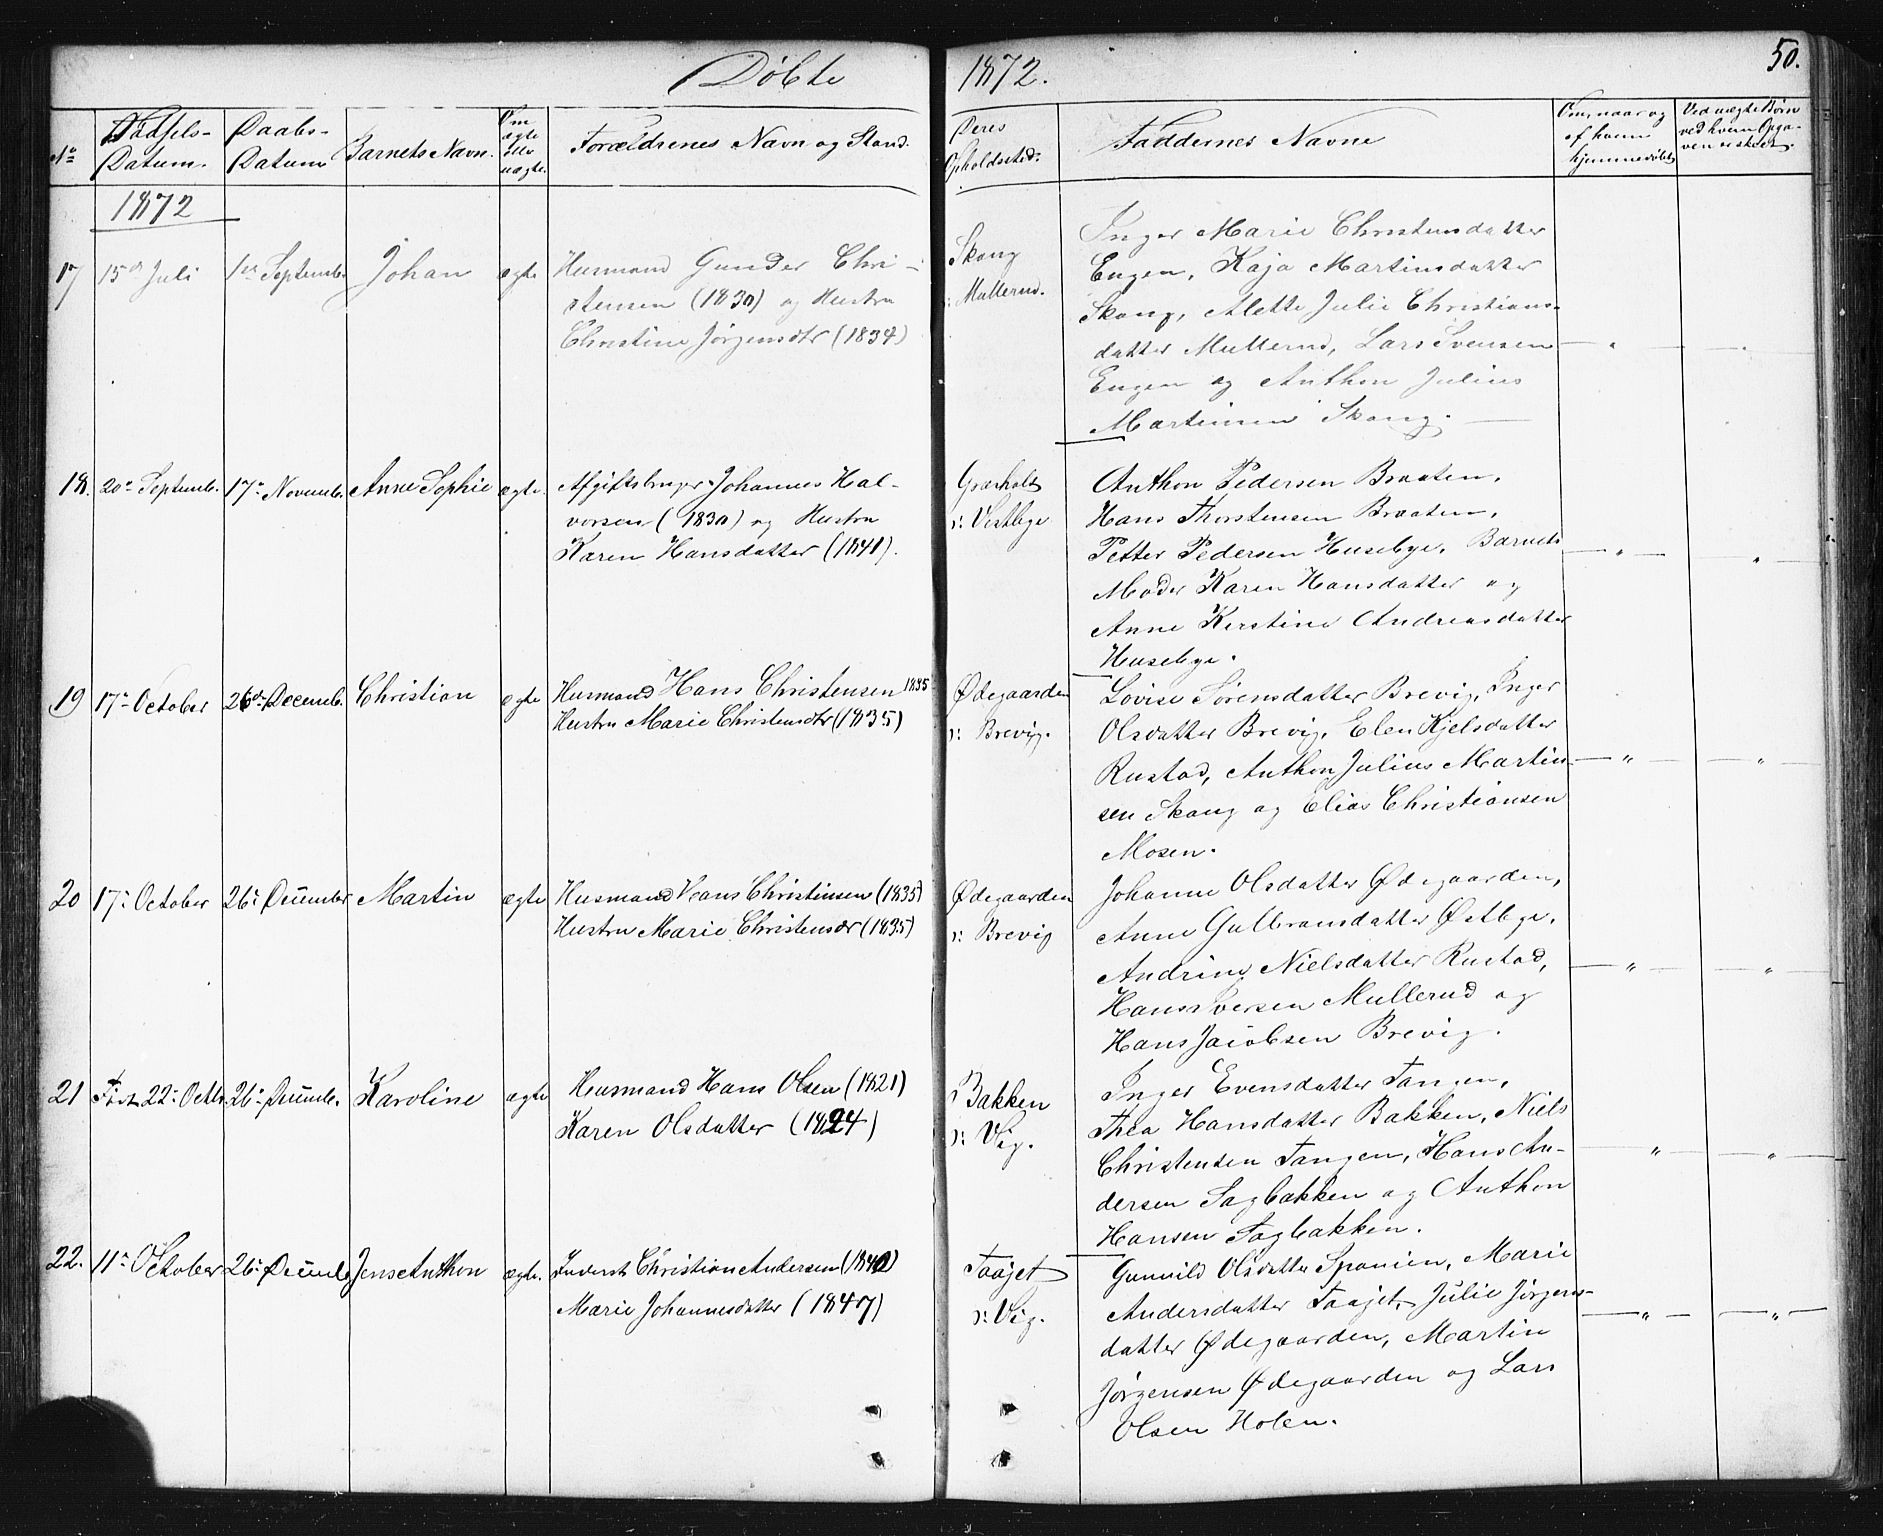 Döbte 1872. 50.
No
Födsels-
Datum.
Daabs-
Datum
Barnets Navn.
Om
ægte
eller
uægte.
Forældrenes Navn og Stand.
Deres
Opholdssted.
Faddernes Navne
Om, naar og
af hvem
hjemmedöbt
Ved uægte Børn
ved hvem Opga-
ven er skeet.
1872
17 15de Juli 1ste Septemb. Johan ægte
Husmand Gunder Chri-
stensen (1830) og Hustru
Christine Jörgensdtr (1834)
Skoug
: Mullerud.
Inger Marie Christensdatter
Engen, Kaja Martinsdatter
Skoug, Alette Julie Christians-
datter Mullerud, Lars Svensen
Engen og Anthon Julius
Martinsen Skoug.
18. 20de Septemb. 17de Novemb. Anne Sophie ægte.
Afgiftsbruger Johannes Hal-
vorsen (1830) og Hustru
Karen Hansdatter (1841).
Græsholt
: Vestbye
Anthon Pedersen Braaten,
Hans Thorstensen Braaten,
Petter Pedersen Husebye, Barnets
Moder Karen Hansdatter og
Anne Kirstine Andreasdatter
Husebye.
19 17de October 26de Decemb. Christian ægte
Husmand Hans Christensen 1835
Hustru Marie Christensdtr (1835)
Ødegaarden
: Brevig.
Lovise Sörensdatter Brevig, Inger
Olsdatter Brevig, Elen Kjelsdatter
Rustad, Anthon Julius Martin-
sen Skoug og Elias Christiansen
Mosen.
20 17de October 26de December Martin ægte
Husmand Hans Christensen (1835)
Hustru Marie Christensdr (1835)
Ødegaarden
: Brevig
Johanne Olsdatter Ødegaarden,
Anne Gulbransdatter Østbye,
Andrine Nielsdatter Rustad,
Hans Iversen Mullerud og
Hans Jacobsen Brevig.
21 22de Octbr. 26de Decemb. Karoline ægte
Husmand Hans Olsen (1821)
Karen Olsdatter (1824)
Bakken
: Vig.
Inger Evensdatter Tangen,
Thea Hansdatter Bakken, Niels
Christensen Tangen, Hans An-
dersen Sagbakken og Anthon
Hansen Sagbakken.
22. 11te October 26de Decemb. Jens Anthon ægte.
Inderst Christian Andersen (1840)
Marie Johannesdatter (1847)
Taajet
: Vig.
Gunnild Olsdatter Spanien, Marie
Andersdatter Taajet, Julie Jörgens-
datter Ødegaarden, Martin
Jörgensen Ødegaarden og Lars
Olsen Holen.